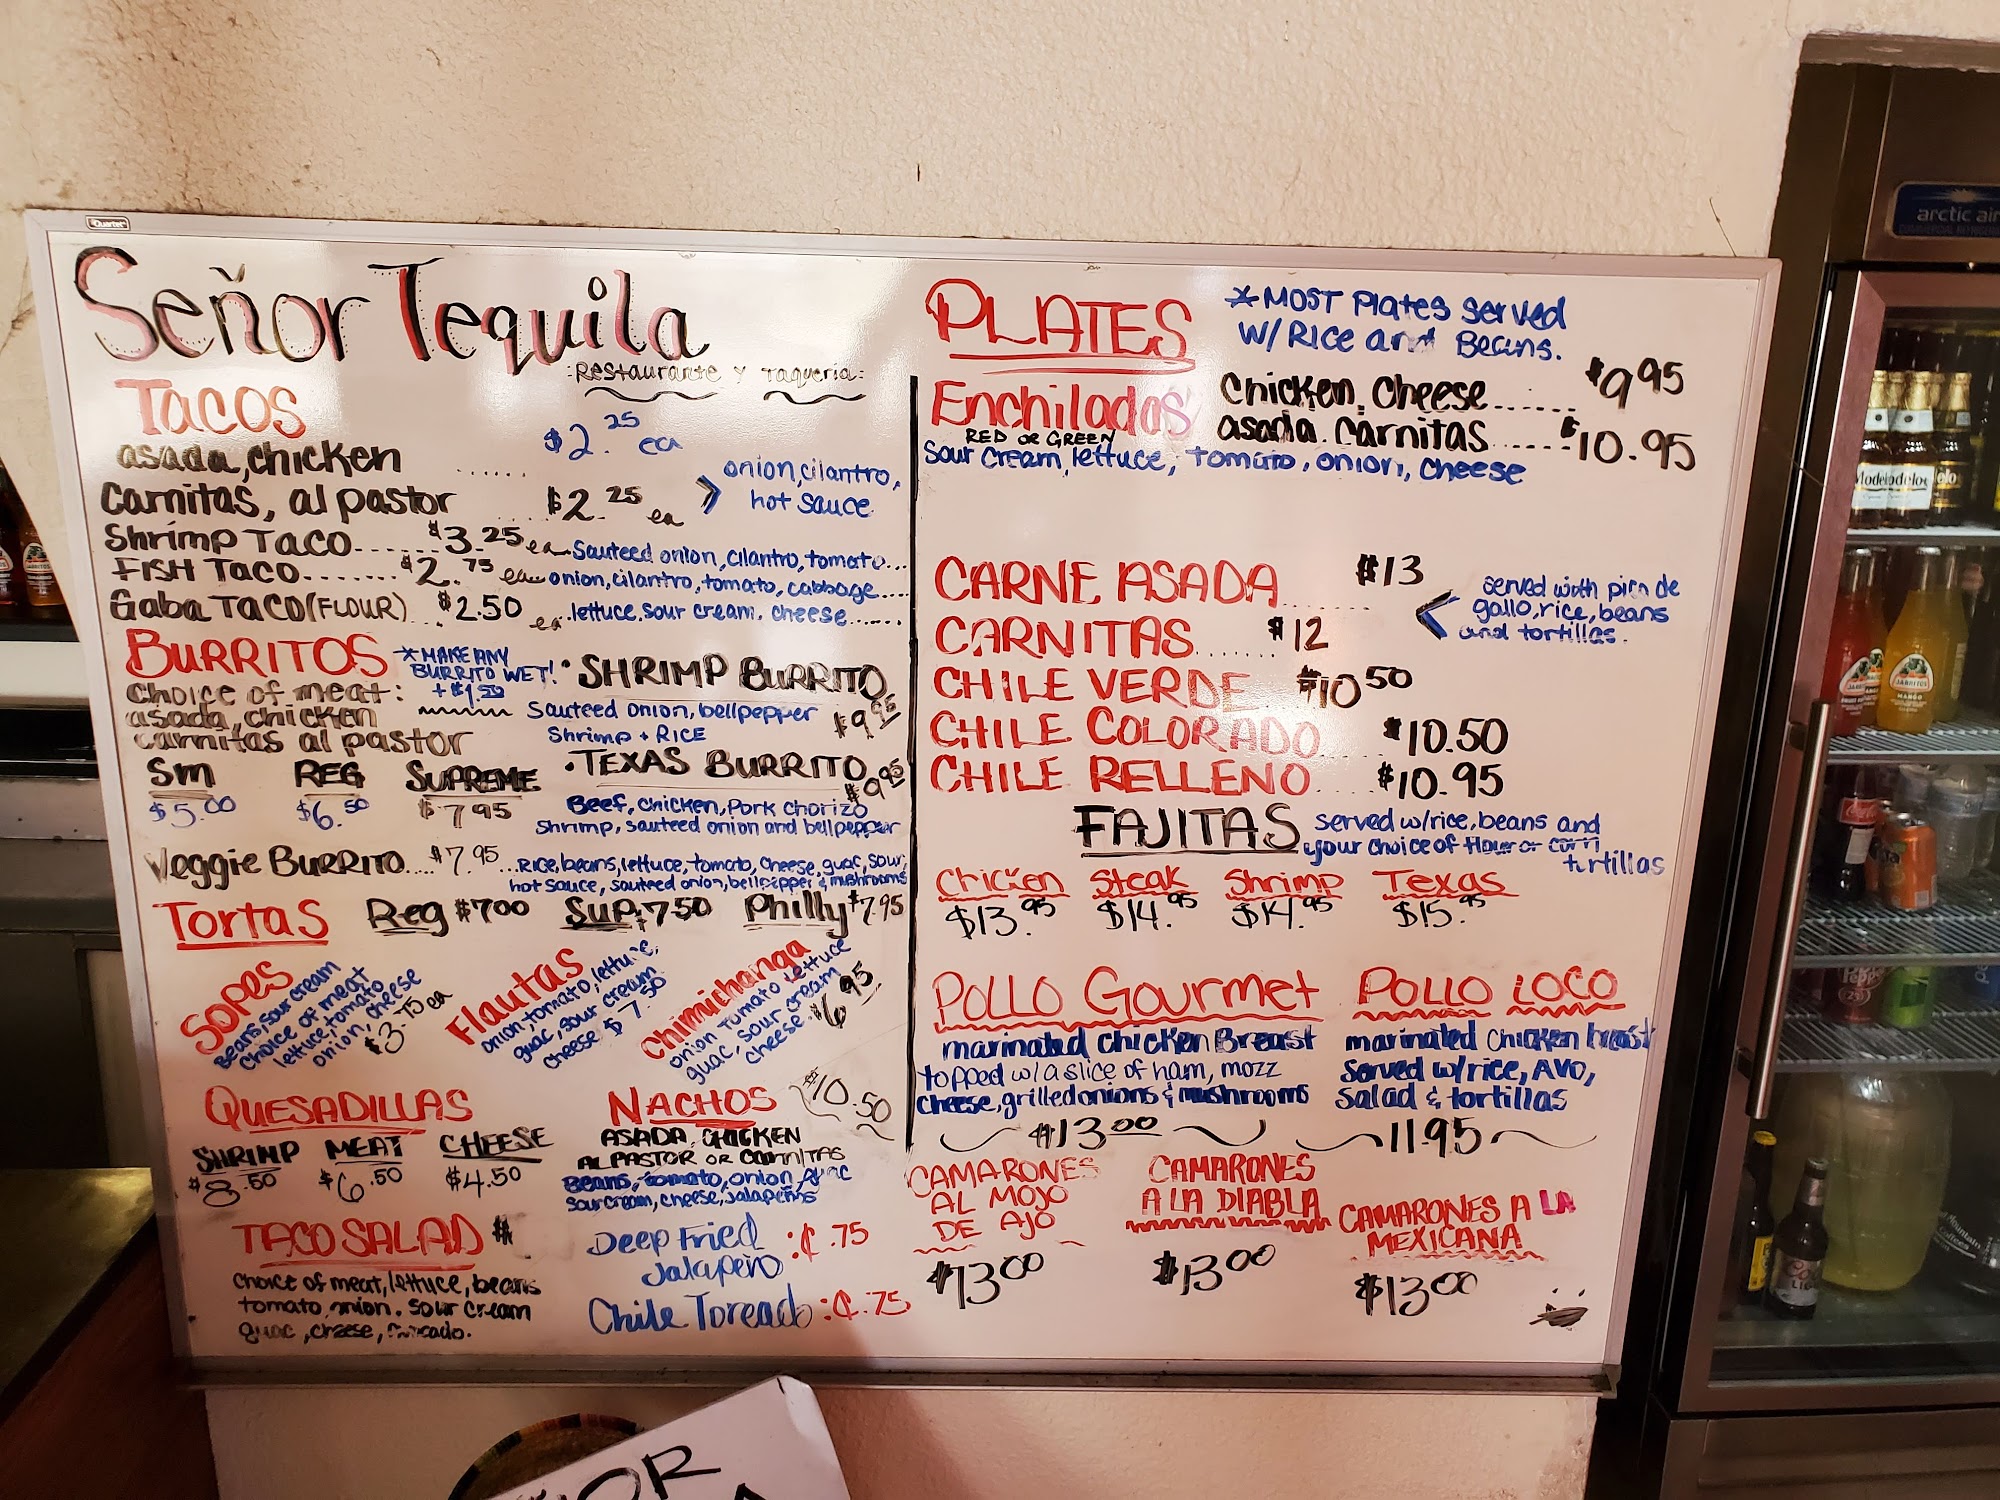 Quartet
Señor Tequila
:Restaurante y Taqueria:
TACOS
asada, chicken ...... $2.25 ea
Carnitas, al pastor ..... $2.25 ea
onion, cilantro,
hot sauce
Shrimp TACO....... $3.25 ea. Sauteed onion, cilantro, tomato...
FISH TACO........ $2.75 ea onion, cilantro, tomato, cabbage....
Gaba TACO (FLOUR).. $2.50 ea. lettuce, sour cream, cheese......
BURRITOS
*MAKE ANY
BURRITO WET!
+ $1.50
Choice of meat:
asada, chicken
carnitas al pastor
SM REG SUPREME
$5.00 $6.50 $7.95
• SHRIMP BURRITO
Sauteed onion, bellpepper $9.95
Shrimp + RICE
• TEXAS BURRITO $9.95
Beef, chicken, pork chorizo
Shrimp, sauteed onion and bellpepper
Veggie BURRITO.... $7.95 ...Rice, beans, lettuce, tomato, cheese, guac, sour,
hot sauce, sauteed onion, bellpepper & mushrooms
TORTAS Reg $7.00 Sup $7.50 Philly $7.95
SOPES
Beans, sour cream
choice of meat
lettuce, tomato
onion, cheese
$3.75 ea
Flautas
onion, tomato, lettuce,
guac, sour cream
cheese $7.50
Chimichanga
onion tomato lettuce
guac, sour cream
cheese. $6.95
QUESADILLAS
SHRIMP MEAT CHEESE
$8.50 $6.50 $4.50
NACHOS $10.50
ASADA, CHICKEN
AL PASTOR OR CARNITAS
Beans, tomato, onion, guac
sour cream, cheese, jalapeños
TACO SALAD $
choice of meat, lettuce, beans
tomato, onion, sour cream
guac, cheese, avocado.
Deep Fried :¢.75
Jalapeño
Chile Toreado :¢.75
PLATES
*MOST Plates served
W/ Rice and Beans.
Enchiladas Chicken, Cheese......... $9.95
RED OR GREEN asada. Carnitas..... $10.95
Sour cream, lettuce, tomato, onion, cheese
CARNE ASADA........ $13
CARNITAS....... $12
served with pico de
gallo, rice, beans
and tortillas.
CHILE VERDE.. $10.50
CHILE COLORADO..... $10.50
CHILE RELLENO..... $10.95
FAJITAS served w/rice, beans and
your choice of flour or corn
tortillas
Chicken Steak Shrimp Texas
$13.95 $14.95 $14.95 $15.95
POLLO Gourmet
marinated chicken Breast
topped w/ a slice of ham, mozz
cheese, grilled onions & mushrooms
$13.00
POLLO LOCO
marinated chicken breast
Served w/rice, AVO,
Salad & tortillas
11.95
CAMARONES
AL MOJO
DE AJO
$13.00
CAMARONES
A LA DIABLA
$13.00
CAMARONES A LA
MEXICANA
$13.00
arctic air
COMMERCIAL REFRIGERA
Modelo
JARRITOS
JARRITOS
MANGO